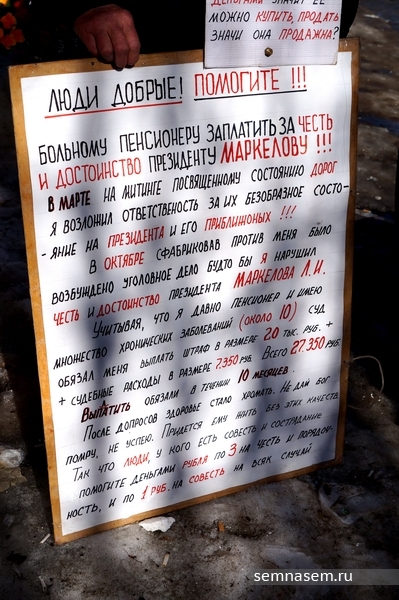 ДЕНЬГАМИ ЗНАЧИТ ЕЁ
МОЖНО КУПИТЬ, ПРОДАТЬ
ЗНАЧИ ОНА ПРОДАЖНА?
ЛЮДИ ДОБРЫЕ! ПОМОГИТЕ !!!
БОЛЬНОМУ ПЕНСИОНЕРУ ЗАПЛАТИТЬ ЗА ЧЕСТЬ
И ДОСТОИНСТВО ПРЕЗИДЕНТУ МАРКЕЛОВУ !!!
В МАРТЕ НА МИТИНГЕ ПОСВЯЩЕННОМУ СОСТОЯНИЮ ДОРОГ
Я ВОЗЛОЖИЛ ОТВЕТСТВЕНОСТЬ ЗА ИХ БЕЗОБРАЗНОЕ СОСТО-
-ЯНИЕ НА ПРЕЗИДЕНТА И ЕГО ПРИБЛИЖОНЫХ !!!
В ОКТЯБРЕ СФАБРИКОВАВ ПРОТИВ МЕНЯ БЫЛО
ВОЗБУЖДЕНО УГОЛОВНОЕ ДЕЛО БУДТО БЫ Я НАРУШИЛ
ЧЕСТЬ И ДОСТОИНСТВО ПРЕЗИДЕНТА МАРКЕЛОВА Л.И.
УЧИТЫВАЯ, ЧТО Я ДАВНО ПЕНСИОНЕР И ИМЕЮ
МНОЖЕСТВО ХРОНИЧЕСКИХ ЗАБОЛЕВАНИЙ (ОКОЛО 10) СУД
ОБЯЗАЛ МЕНЯ ВЫПЛАТЬ ШТРАФ В РАЗМЕРЕ 20 ТЫС. РУБ. +
+ СУДЕБНЫЕ РАСХОДЫ В РАЗМЕРЕ 7.350 РУБ. ВСЕГО 27.350 РУБ.
ВЫПЛАТИТЬ ОБЯЗАЛИ В ТЕЧЕНИИ 10 МЕСЯЦЕВ.
ПОСЛЕ ДОПРОСОВ ЗДОРОВЬЕ СТАЛО ХРОМАТЬ. НЕ ДАЙ БОГ
ПОМРУ, НЕ УСПЕЮ. ПРИДЕТСЯ ЕМУ ЖИТЬ БЕЗ ЭТИХ КАЧЕСТВ
ТАК ЧТО ЛЮДИ, У КОГО ЕСТЬ СОВЕСТЬ И СОСТРАДАНИЕ
ПОМОГИТЕ ДЕНЬГАМИ РУБЛЯ ПО 3 НА ЧЕСТЬ И ПОРЯДОЧ-
НОСТЬ, И ПО 1 РУБ. НА СОВЕСТЬ НА ВСЯК СЛУЧАЙ
semnasem.ru